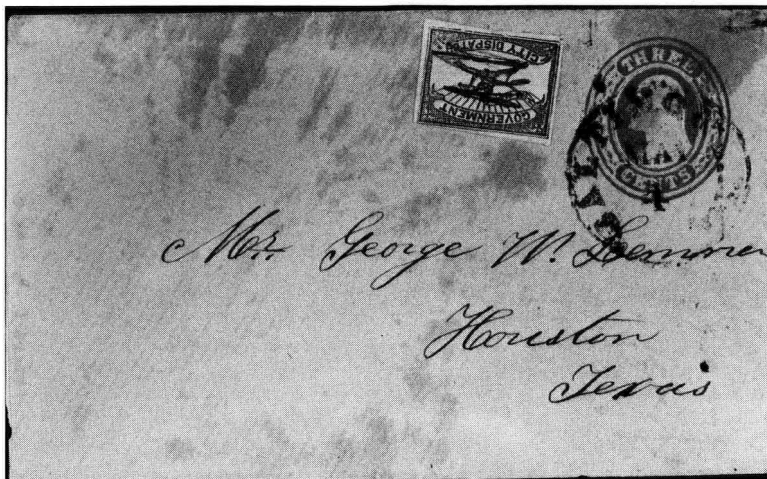 GOVERNMENT
CITY DISPATCH
THREE
CENTS
Mr. George W.
Houston
Texas